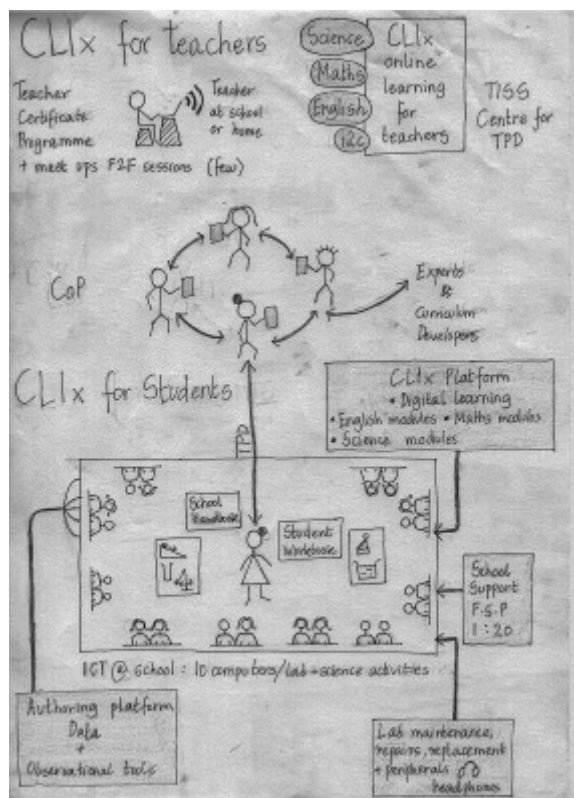 CLIx for teachers
Teacher
Certificate
Programme
+ meet ups F2F sessions (few)
Teacher
at school
or home
Science
Maths
English
i2c
CLIx
online
learning
for
teachers
TISS
Centre for
TPD
CoP
Experts
&
Curriculum
Developers
CLIx for Students
CLIx Platform
• Digital learning
• English modules • Maths modules
• Science modules
TPD
School
Handbook
Student
Workbook
School
Support
F.S.P
1 : 20
ICT @ School : 10 computers/lab + science activities
Authoring platform
Data
+
Observational tools
Lab maintenance,
repairs, replacement
+ peripherals
headphones